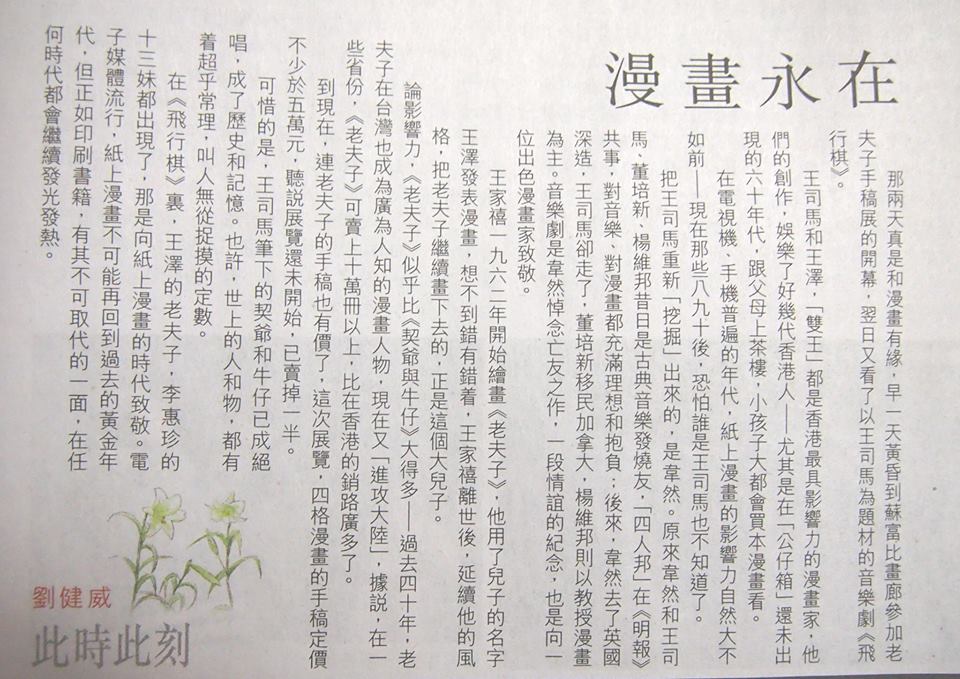 漫畫永在
那兩天真是和漫畫有緣，早一天黃昏到蘇富比畫廊參加老
夫子手稿展的開幕，翌日又看了以王司馬為題材的音樂劇《飛
行棋》。
王司馬和王澤，「雙王」都是香港最具影響力的漫畫家，他
們的創作，娛樂了好幾代香港人——尤其是在「公仔箱」還未出
現的六十年代，跟父母上茶樓，小孩子大都會買本漫畫看。
在電視機、手機普遍的年代，紙上漫畫的影響力自然大不
如前——現在那些八九十後，恐怕誰是王司馬也不知道了。
把王司馬重新「挖掘」出來的，是韋然。原來韋然和王司
馬、董培新、楊維邦昔日是古典音樂發燒友，「四人邦」在《明報》
共事，對音樂、對漫畫都充滿理想和抱負；後來，韋然去了英國
深造，王司馬卻走了，董培新移民加拿大，楊維邦則以教授漫畫
為主。音樂劇是韋然悼念亡友之作，一段情誼的紀念，也是向一
位出色漫畫家致敬。
王家禧一九六二年開始繪畫《老夫子》，他用了兒子的名字
王澤發表漫畫，想不到錯有錯着，王家禧離世後，延續他的風
格，把老夫子繼續畫下去的，正是這個大兒子。
論影響力，《老夫子》似乎比《契爺與牛仔》大得多——過去四十年，老
夫子在台灣也成為廣為人知的漫畫人物，現在又「進攻大陸」，據說，在一
些省份，《老夫子》可賣上十萬冊以上，比在香港的銷路廣多了。
到現在，連老夫子的手稿也有價了，這次展覽，四格漫畫的手稿定價
不少於五萬元，聽說展覽還未開始，已賣掉一半。
可惜的是，王司馬筆下的契爺和牛仔已成絕
唱，成了歷史和記憶。也許，世上的人和物，都有
着超乎常理，叫人無從捉摸的定數。
在《飛行棋》裏，王澤的老夫子，李惠珍的
十三妹都出現了，那是向紙上漫畫的時代致敬。電
子媒體流行，紙上漫畫不可能再回到過去的黃金年
代，但正如印刷書籍，有其不可取代的一面，在任
何時代都會繼續發光發熱。
劉健威
此時此刻